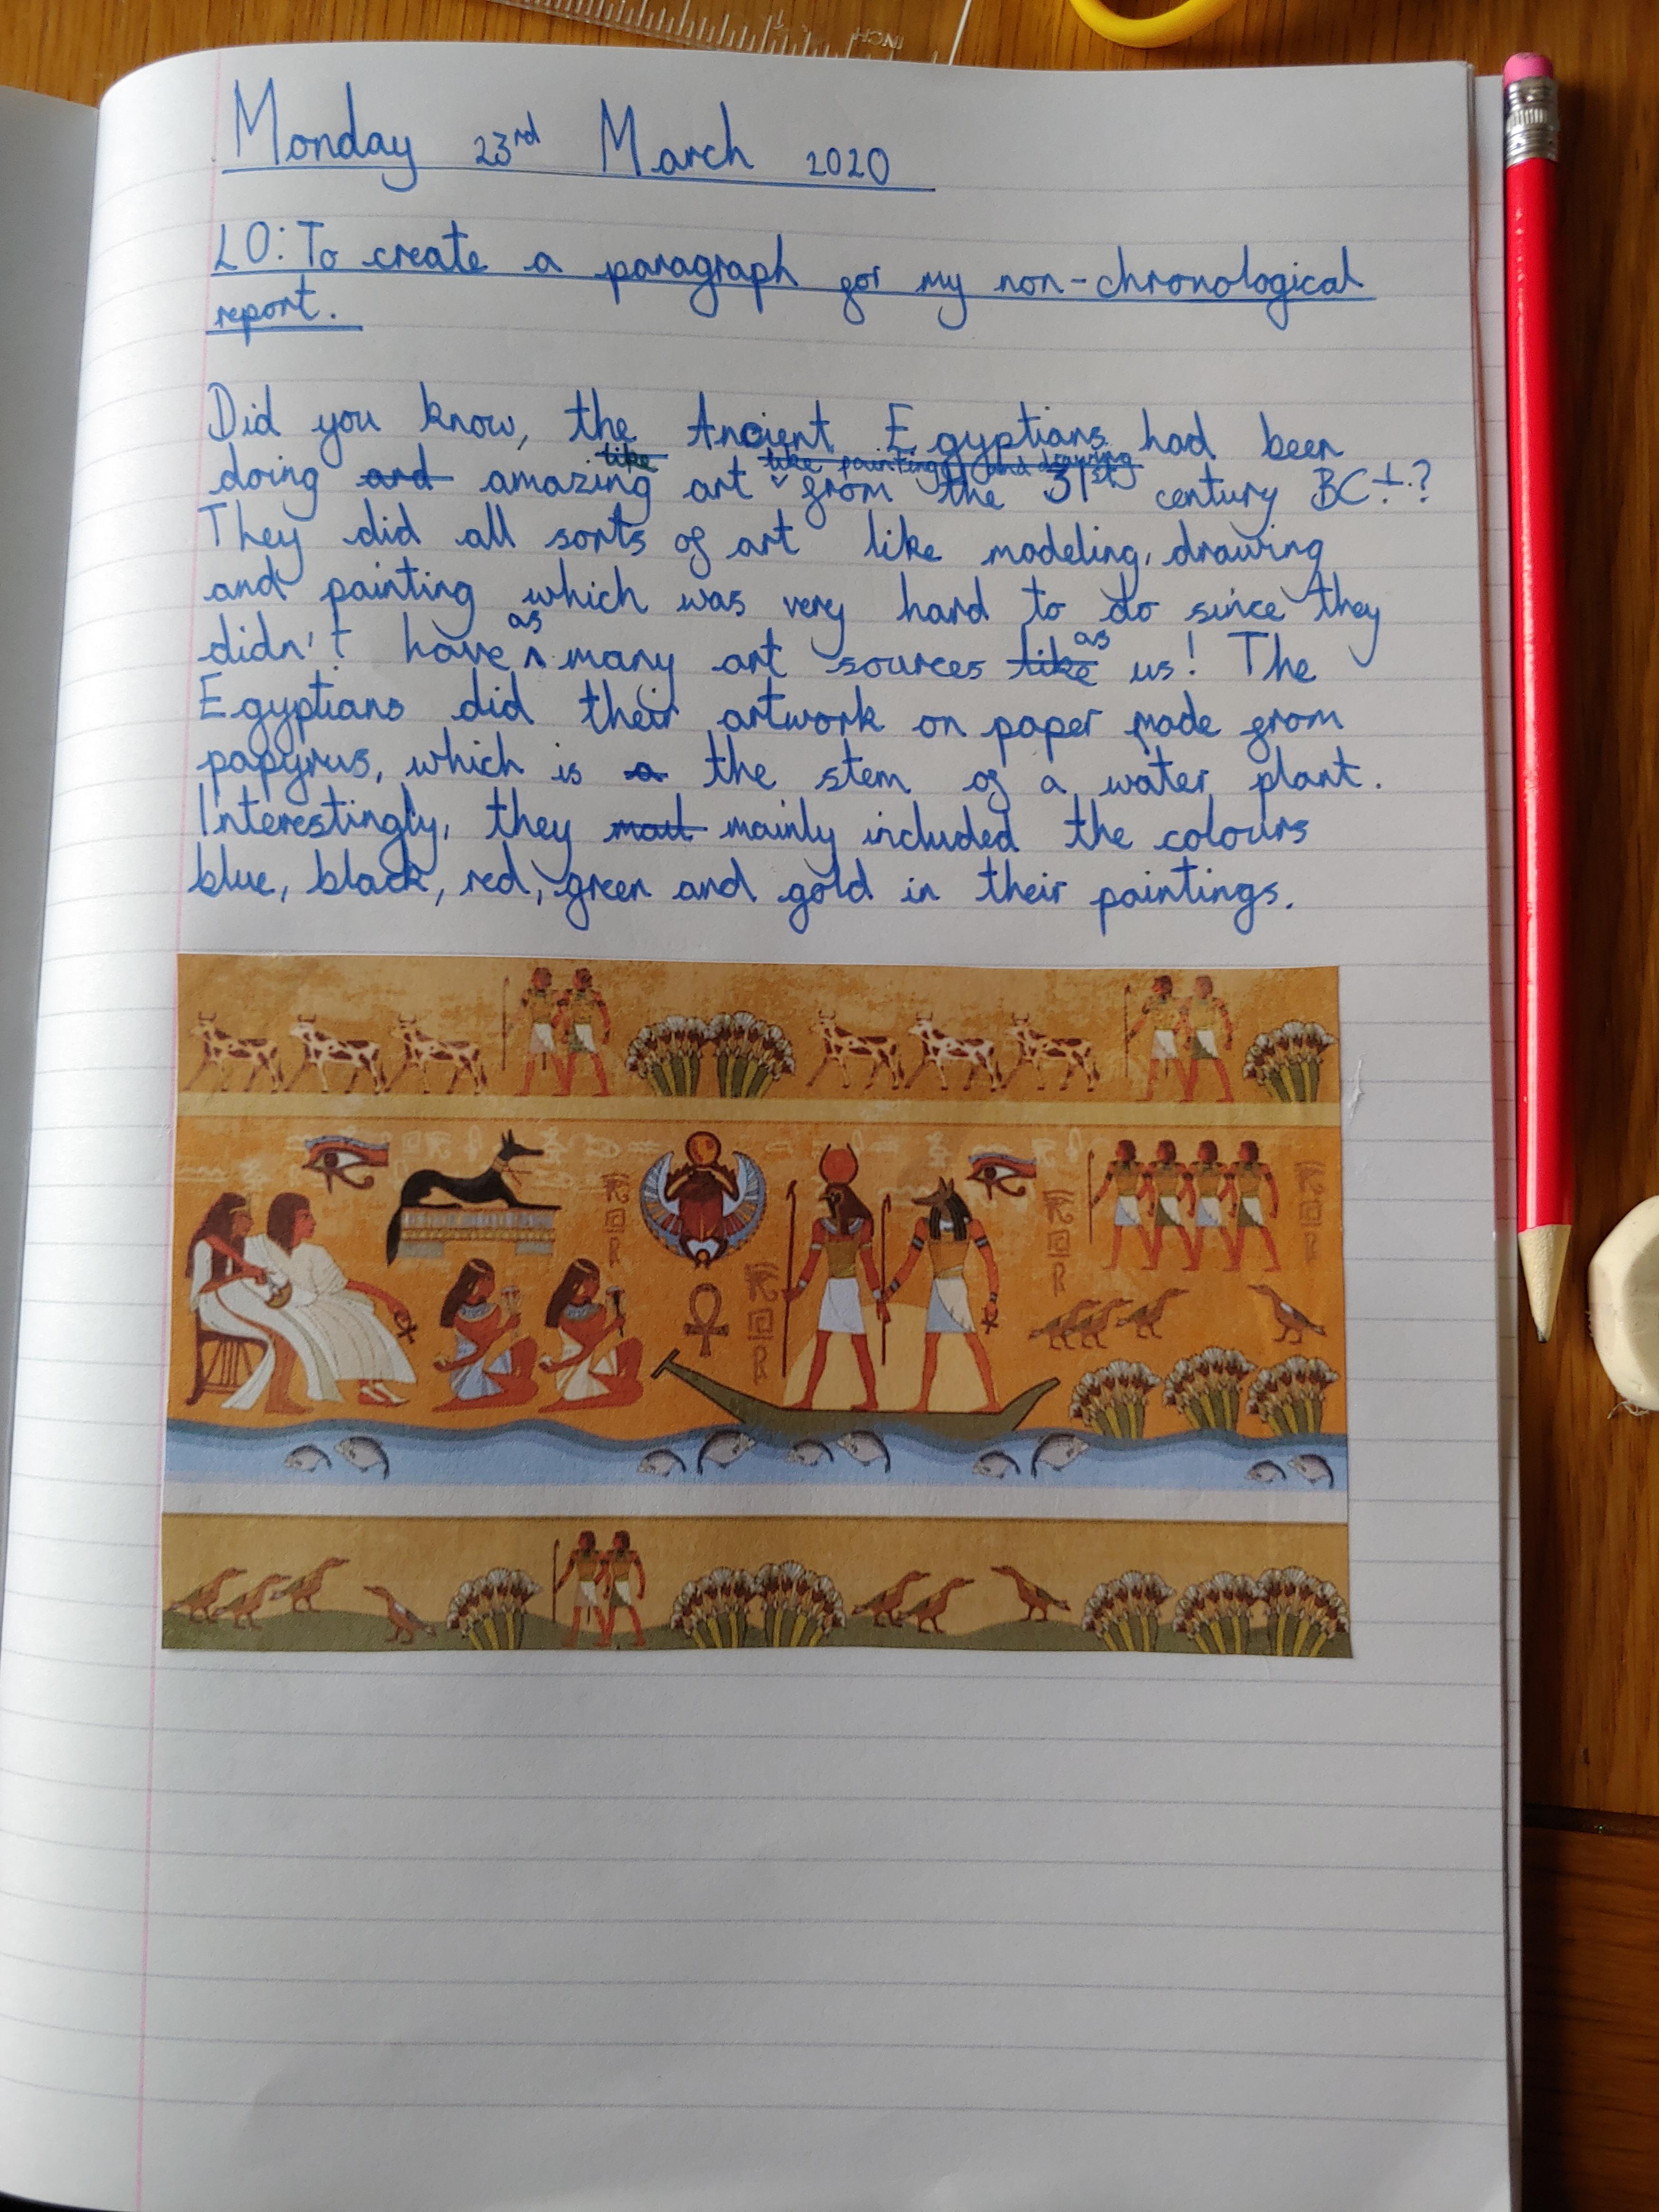 INCH
Monday 23rd March 2020
LO: To create a paragraph for my non-chronological
report.
Did you know, the Ancient Egyptians had been
like like painting and drawing
doing and amazing art from the 31st century BC!?
They did all sorts of art like modeling, drawing
and painting which was very hard to do since they
as as
didn't have many art sources like us! The
Egyptians did their artwork on paper made from
papyrus, which is a the stem of a water plant.
Interestingly, they mainly included the colours
blue, black, red, green and gold in their paintings.